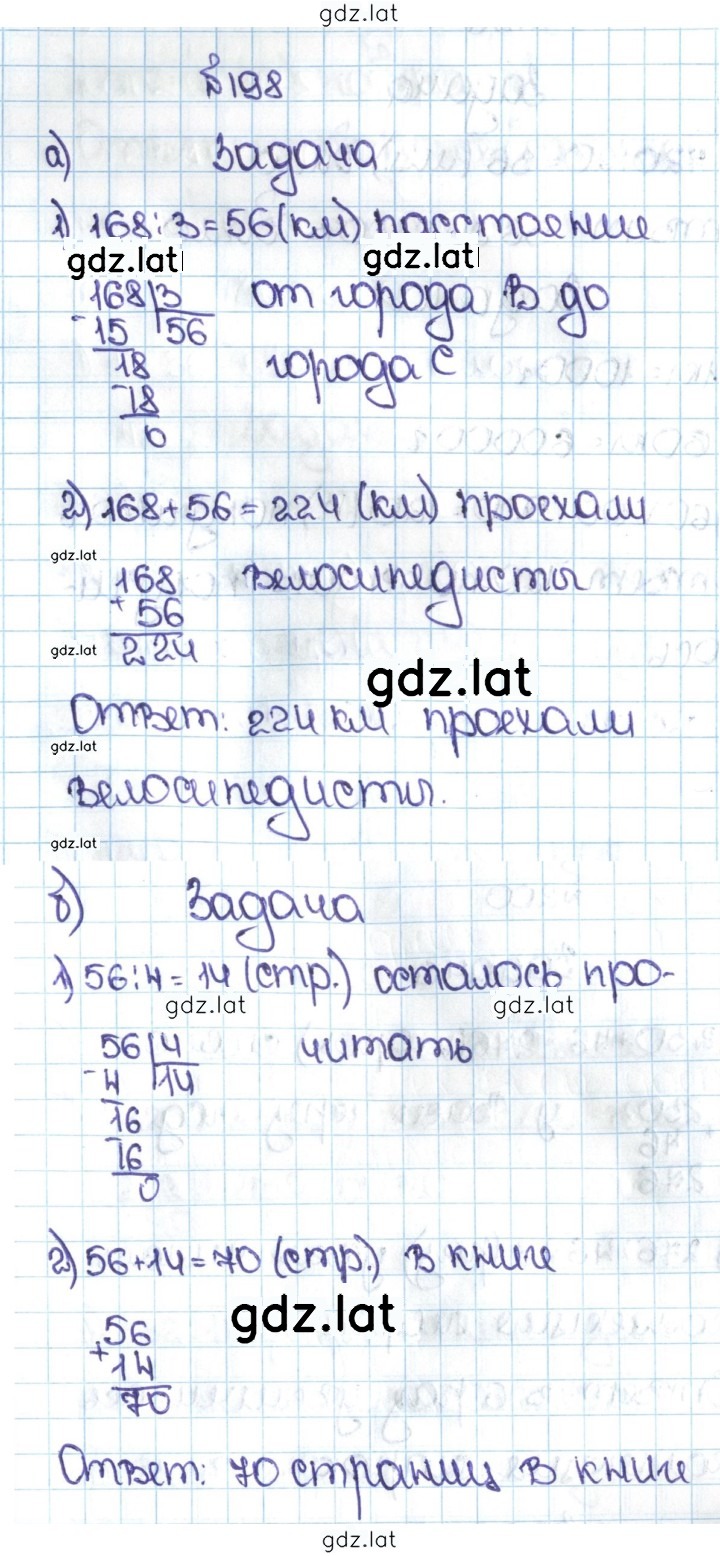 gdz.lat
№198
а) Задача
1) 168:3=56(км) расстояние
gdz.lat gdz.lat
168|3 от города В до
- 15 56
18 города С
- 18
0
2) 168+56=224 (км) проехали
gdz.lat
168 велосипедисты
+ 56
gdz.lat 224
gdz.lat
Ответ: 224 км проехали
gdz.lat
велосипедисты.
gdz.lat
б) Задача
1) 56:4=14 (стр.) осталось про-
gdz.lat gdz.lat
56|4 читать
- 4 14
16
- 16
0
2) 56+14=70 (стр.) в книге
gdz.lat
56
+ 14
70
Ответ: 70 страниц в книге
gdz.lat